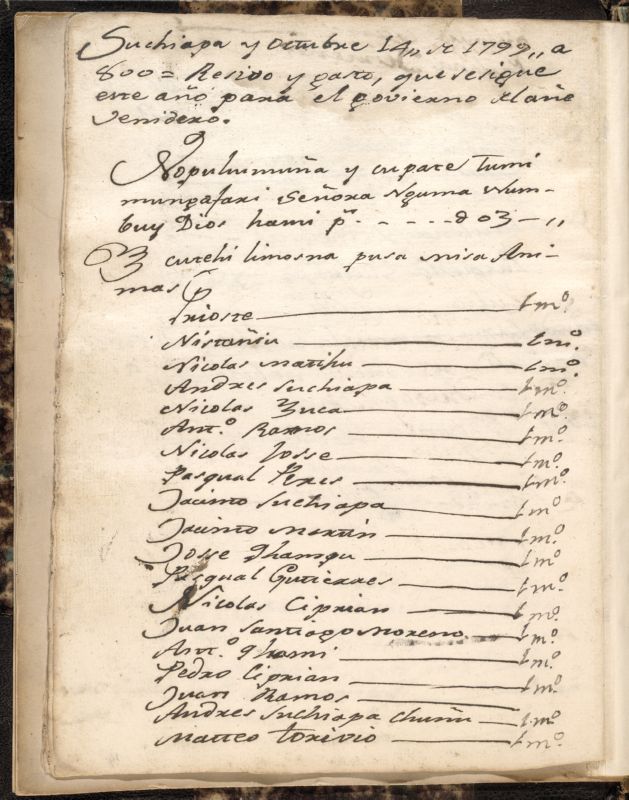 Suchiapa y Octubre 14,, de 1799,, a
800 = Resivo y gasto, que sesigue
este año para el govierno del año
venidero.
Nopuluimuña y cupare tumi
mungafari Señora Nguma Num-
buy Dios hami pr. - - - - - d 03 - ,,
cutehi limosna pusa misa Ani-
mas
Prioste tmo.
Nistañiu tmo.
Nicolas matihu tmo.
Andres Suchiapa tmo.
Nicolas Buca tmo.
Anto. Ramos tmo.
Nicolas Josse tmo.
Pasqual Peres tmo.
Jacinto Suchiapa tmo
Jacinto Martin tmo.
Josse Nhamqu tmo
Pasqual Gutierres tmo.
Nicolas Ciprian tmo.
Juan Santiago Moreno tmo.
Anto. Nhami tmo.
Pedro Ciprian tmo.
Juan Ramos
Andres Suchiapa Chuñu tmo.
Matteo torivio tmo.